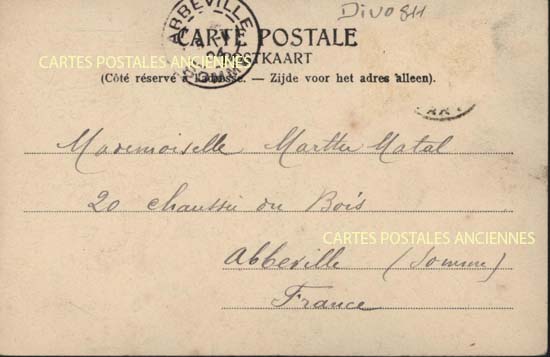 DIVO811
ABBEVILLE
CARTE POSTALE
POSTKAART
CARTES POSTALES ANCIENNES
(Côté réservé à l'adresse. — Zijde voor het adres alleen).
Mademoiselle Marthe Matal
20 chaussée du Bois
CARTES POSTALES ANCIENNES
Abbeville (Somme)
France